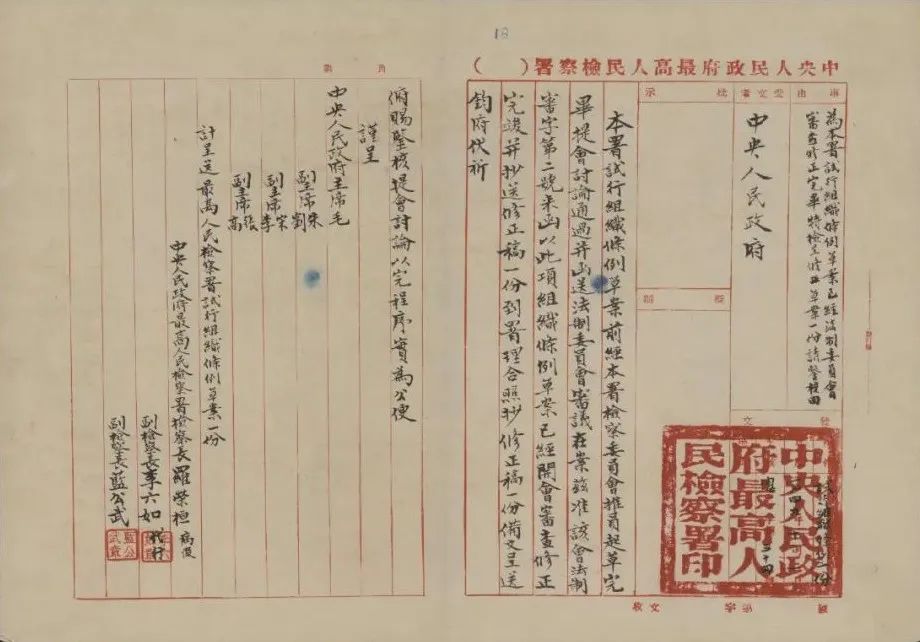 18
中央人民政府最高人民檢察署( )
事由
為本署試行組織條例草案已經法制委員會
審查修正完畢特檢呈修正草案一份請鑒核由
受文者
中央人民政府
批示
擬辦
中央人民政
府最高人
民檢察署印
本署試行組織條例草案前經本署檢察委員會推員起草完
畢提會討論通過并函送法制委員會審議在案茲准該會法制
審字第二號来函以此項組織條例草案已經開會審查修正
完竣并抄送修正稿一份到署理合照抄修正稿一份備文呈送
鈞府代祈
俯賜鑒核提會討論以完程序實為公便
謹呈
中央人民政府主席毛
副主席朱
劉
副主席宋
李
副主席張
高
計呈送最高人民檢察署試行組織條例草案一份
中央人民政府最高人民檢察署檢察長羅榮桓 病假
副檢察長李六如 代行
副檢察長藍公武
藍公
武章